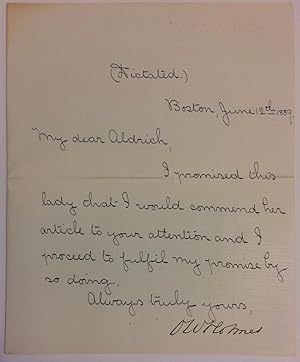 (Dictated.)
Boston, June 12th 1889.
My dear Aldrich,
I promised this
lady that I would commend her
article to your attention and I
proceed to fulfil my promise by
so doing.
Always truly yours,
O W Holmes